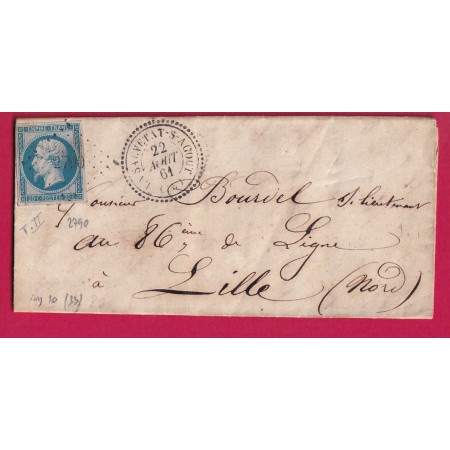 EMPIRE FRANC
20 C POSTES 20 C
LA SALVETAT-S-AGOUT
22
AOUT
61
Monsieur Bourdel s. lieutenant
au 86ème de Ligne
à Lille (Nord)
T. II
2790